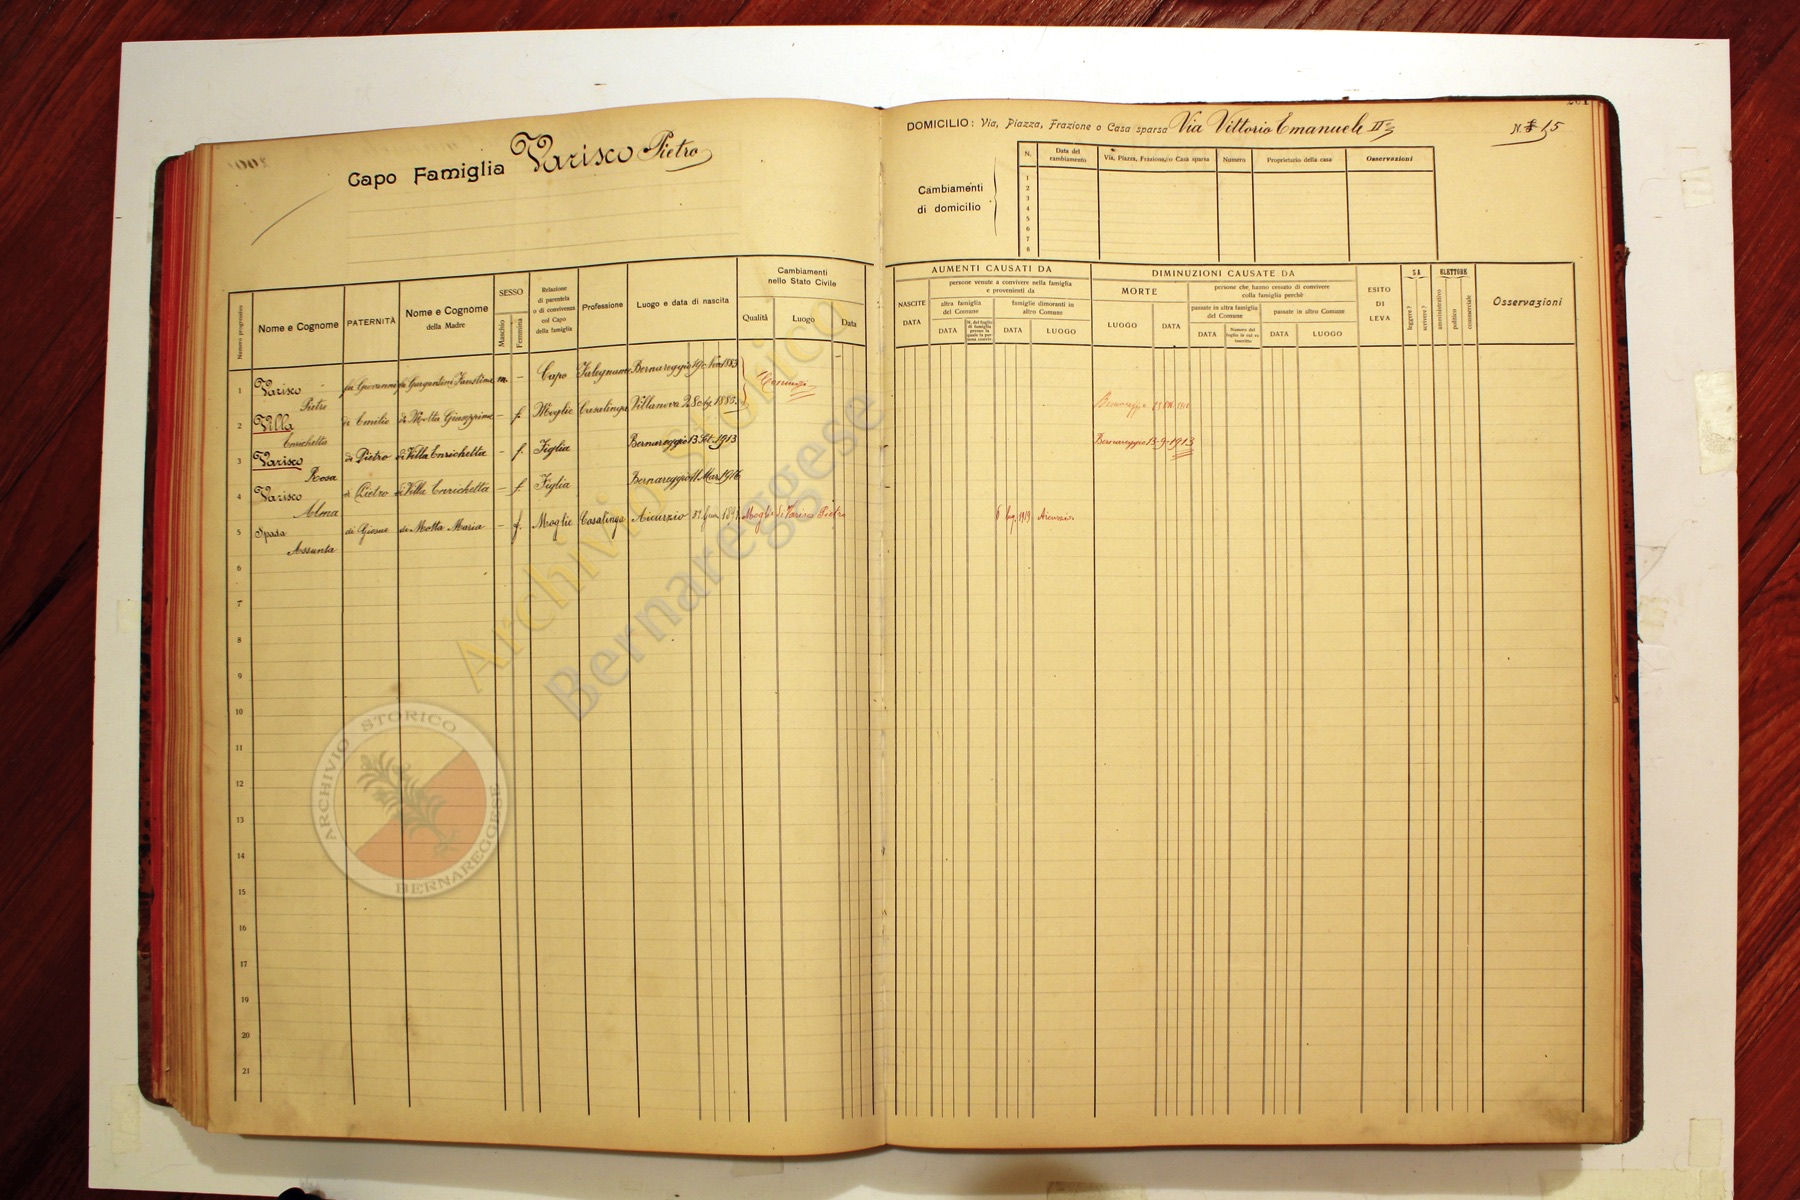 Capo Famiglia Varisco Pietro
DOMICILIO: Via, Piazza, Frazione o Casa sparsa Via Vittorio Emanuele II°
N. 15
Cambiamenti
di domicilio
N. Data del cambiamento Via, Piazza, Frazione o Casa sparsa Numero Proprietario della casa Osservazioni
1
2
3
4
5
6
7
8
Numero progressivo
Nome e Cognome
PATERNITÀ
Nome e Cognome
della Madre
SESSO
Maschio
Femmina
Relazione
di parentela
o di convivenza
col Capo
della famiglia
Professione
Luogo e data di nascita
Cambiamenti
nello Stato Civile
Qualità Luogo Data
AUMENTI CAUSATI DA
NASCITE
DATA
persone venute a convivere nella famiglia
e provenienti da
altra famiglia
del Comune
DATA
famiglie dimoranti in
altro Comune
DATA LUOGO
DIMINUZIONI CAUSATE DA
MORTE
LUOGO DATA
persone che hanno cessato di convivere
colla famiglia perchè
passate in altra famiglia
del Comune
DATA
Numero del
passate in altro Comune
DATA LUOGO
ESITO
DI
LEVA
SA
leggere?
scrivere?
ELETTORE
amministrativo
politico
commerciale
Osservazioni
1 Varisco Pietro fu Giovanni di Gargantini Faustina m. - Capo Falegname Bernareggio 19 Nov. 1883 Coniugi
2 Villa Enrichetta di Emilio di Motta Giuseppina - f. Moglie Casalinga Villanova 2 1885 Bernareggio
3 Varisco Rosa di Pietro di Villa Enrichetta - f. Figlia Bernareggio 13 Set. 1913 Bernareggio 13-9-1913
4 Varisco Alma di Pietro di Villa Enrichetta - f. Figlia Bernareggio 11 Mar. 1916
5 Spada Assunta di Giosue di Motta Maria - f. Moglie Casalinga Aicurzio Moglie di Varisco Pietro 1919 Aicurzio
6
7
8
9
10
11
12
13
14
15
16
17
18
19
20
21
Archivio Storico
Bernareggese
ARCHIVIO STORICO
BERNAREGGESE